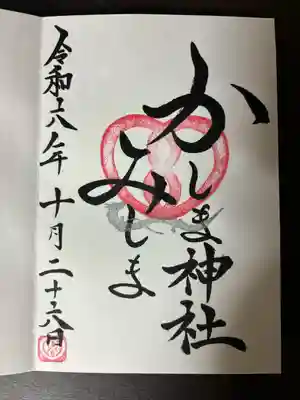 かしま神社
みしま
令和六年十月二十六日